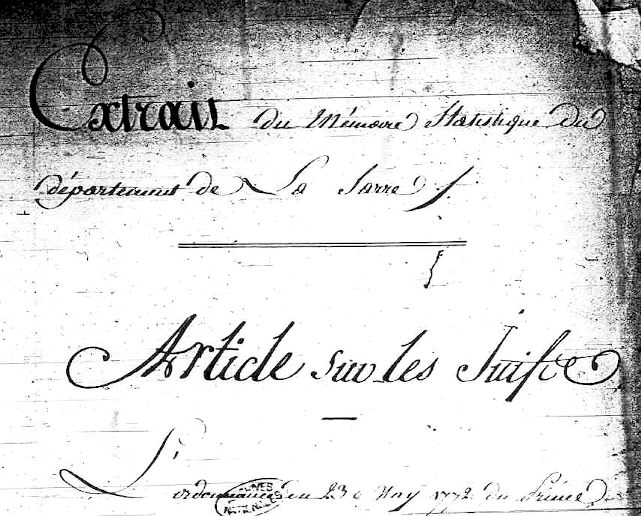 Extrait du Mémoire Statistique du
département de La Sarre
Article sur les Juifs
L'ordonnance du 23 May 1772 du Prince de
ARCHIVES NATIONALES